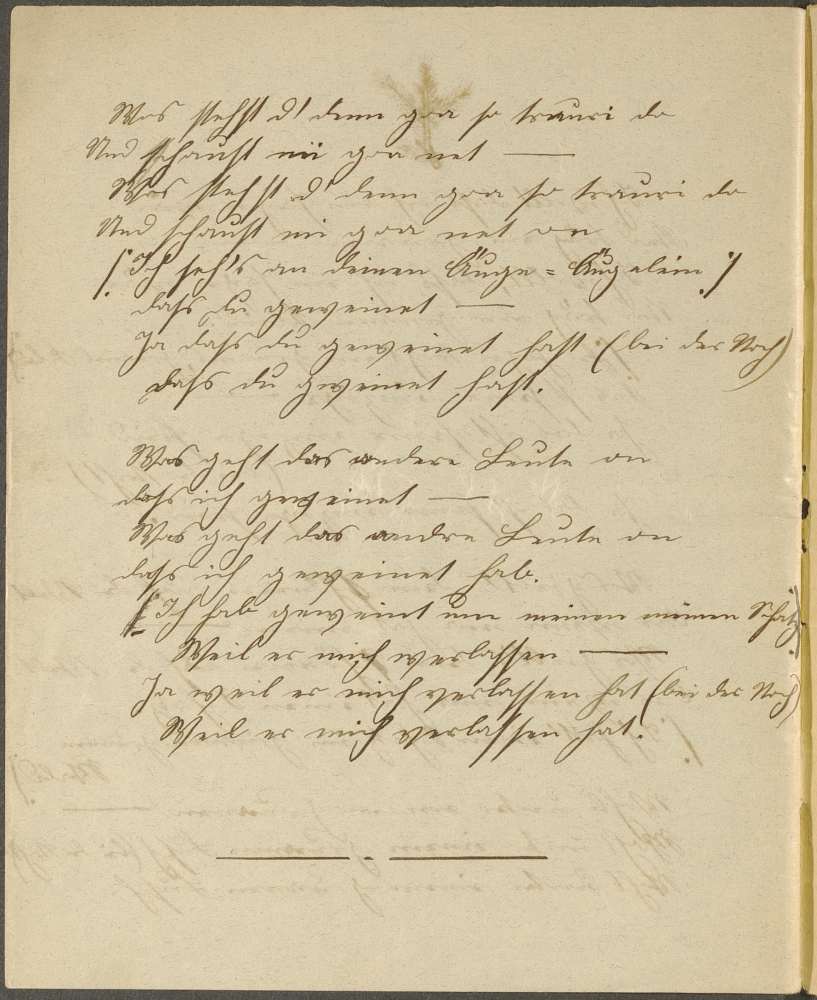 Was stehst d' denn goa so trauri do
Und schaust mi goa net —
Was stehst d' denn goa so trauri do
Und schaust mi goa net on
/: Ich seh's an deinen Äuge = Äugelein :/
dass du geweinet —
Ja dass du geweinet hast (bei der Nach)
dass du gweinet hast.
Was geht das andere Leute on
dass ich geweinet —
Was geht das andre Leute on
dass ich geweinet hab.
/: Ich hab geweint um meinen meinen Schatz :/
Weil er mich verlassen —
Ja weil er mich verlassen hat (bei der Nach)
Weil er mich verlassen hat.